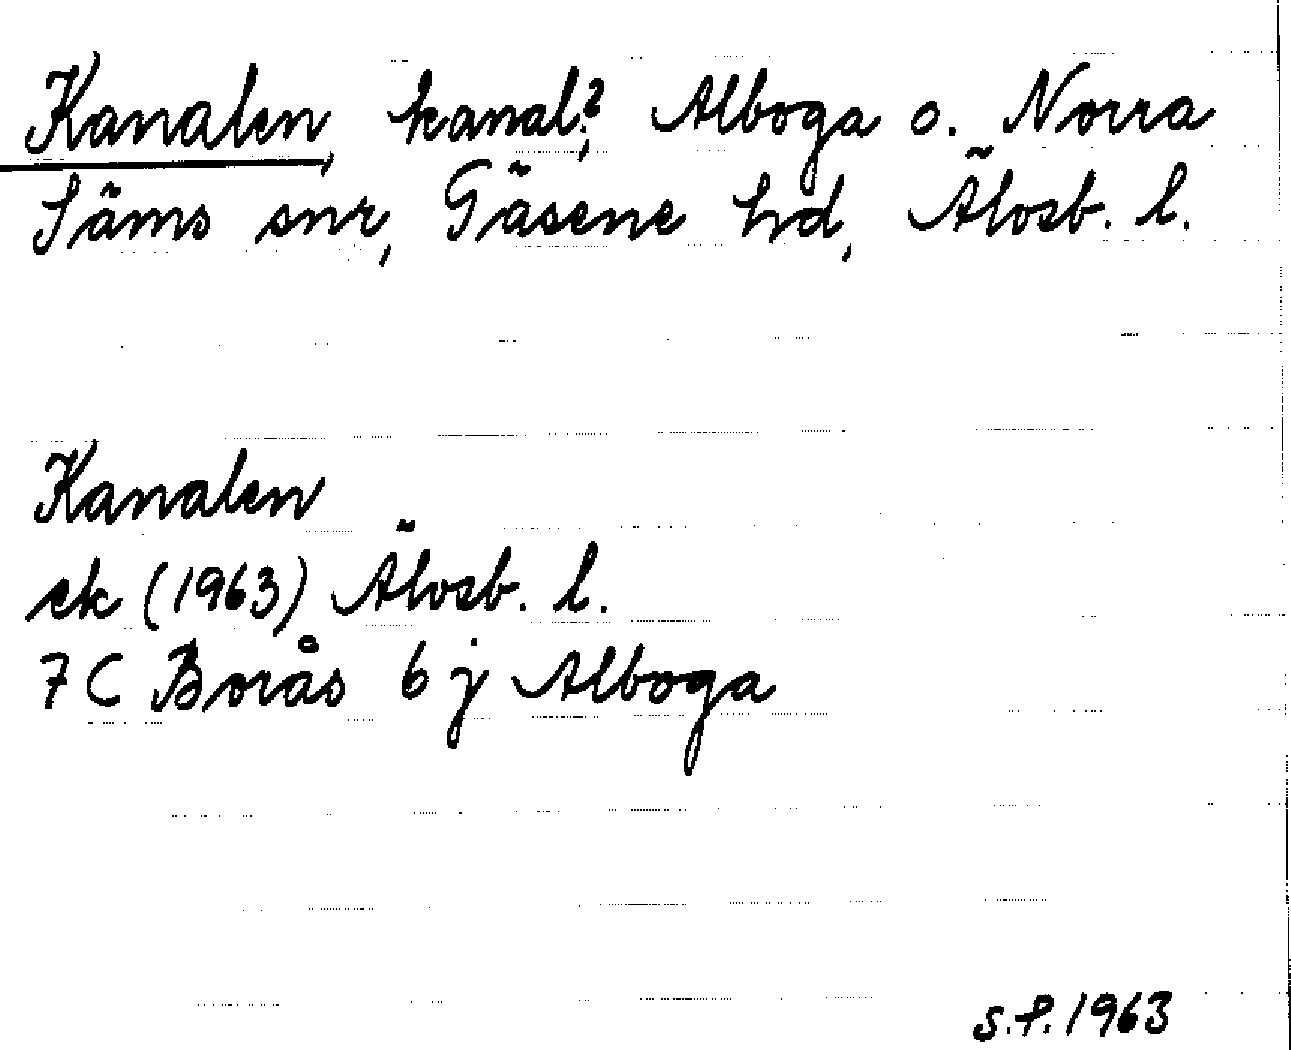 Kanalen, kanal?, Alboga o. Norra
Säms snr, Gäsene hd, Älvsb. l.
Kanalen
ek (1963) Älvsb. l.
7 C Borås 6 j Alboga
S.F. 1963